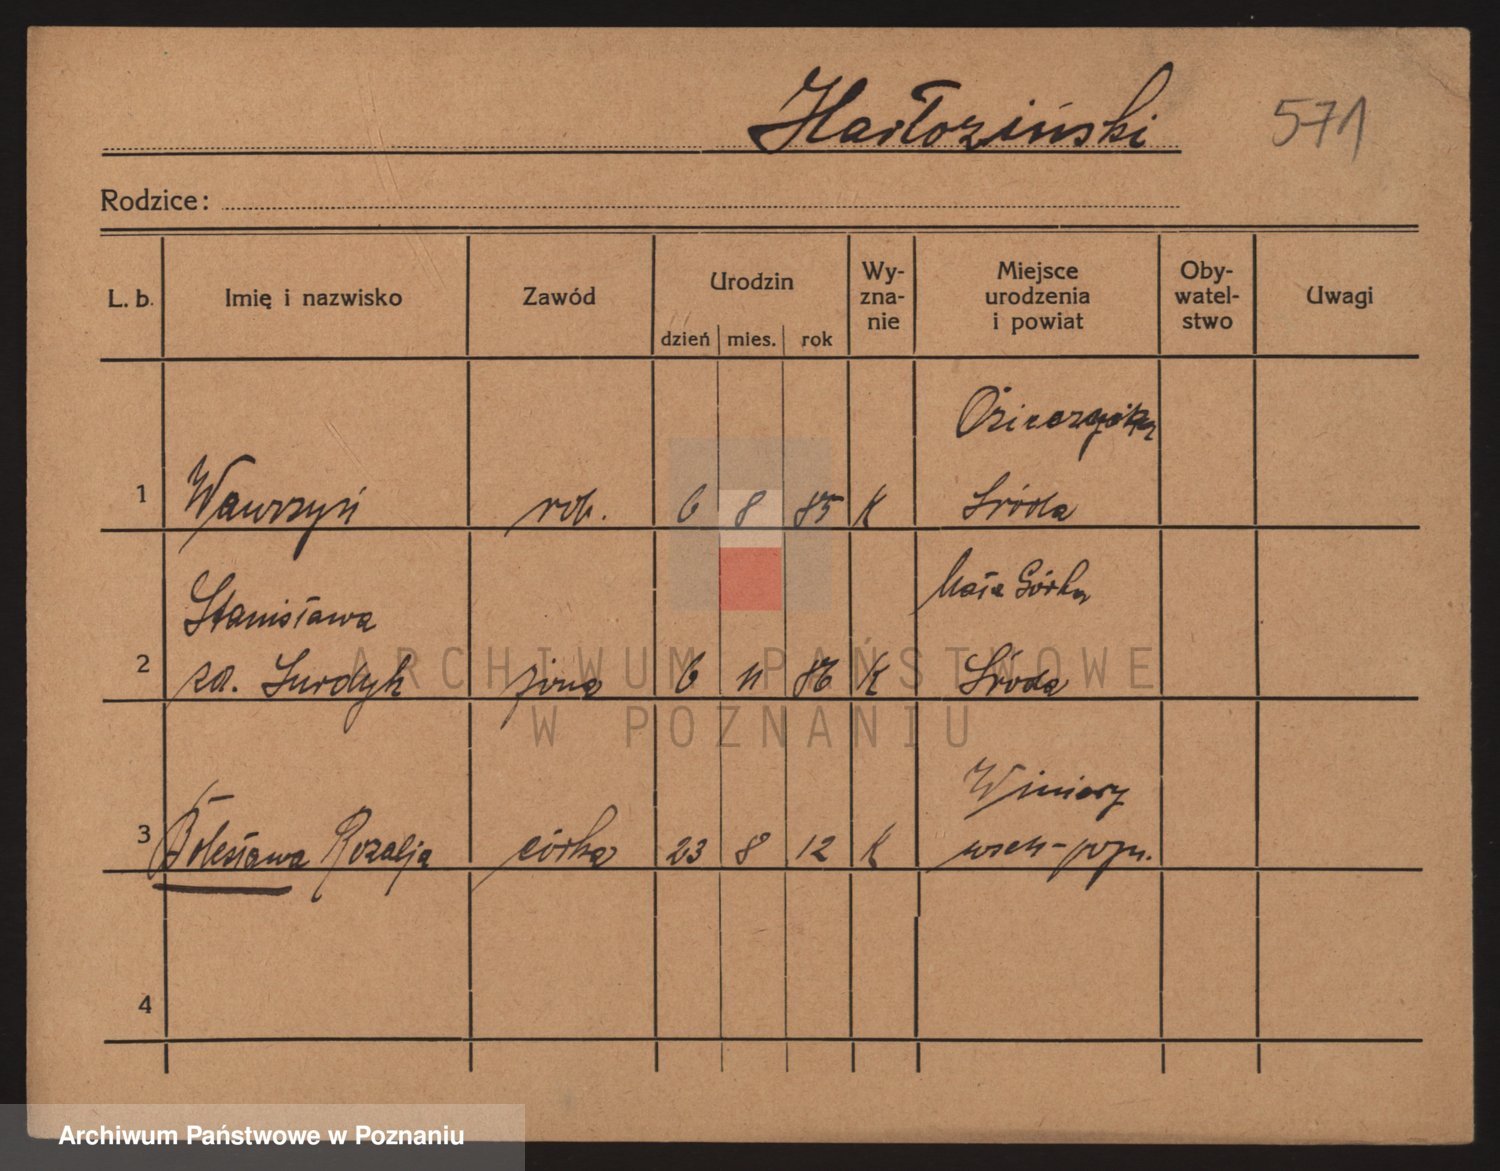 Harłoziński
571
Rodzice:
L. b.
Imię i nazwisko
Zawód
Urodzin
dzień
mies.
rok
Wy-
zna-
nie
Miejsce
urodzenia
i powiat
Oby-
watel-
stwo
Uwagi
1
Wawrzyń
rob.
6
8
85
K
Środa
2
Stanisława
zd. Surdyk
żona
6
11
86
K
Mała Górka
Środa
3
Bolesława Rozalja
córka
23
8
12
K
Winiary
wsch-pozn.
4
ARCHIWUM PAŃSTWOWE
W POZNANIU
Archiwum Państwowe w Poznaniu